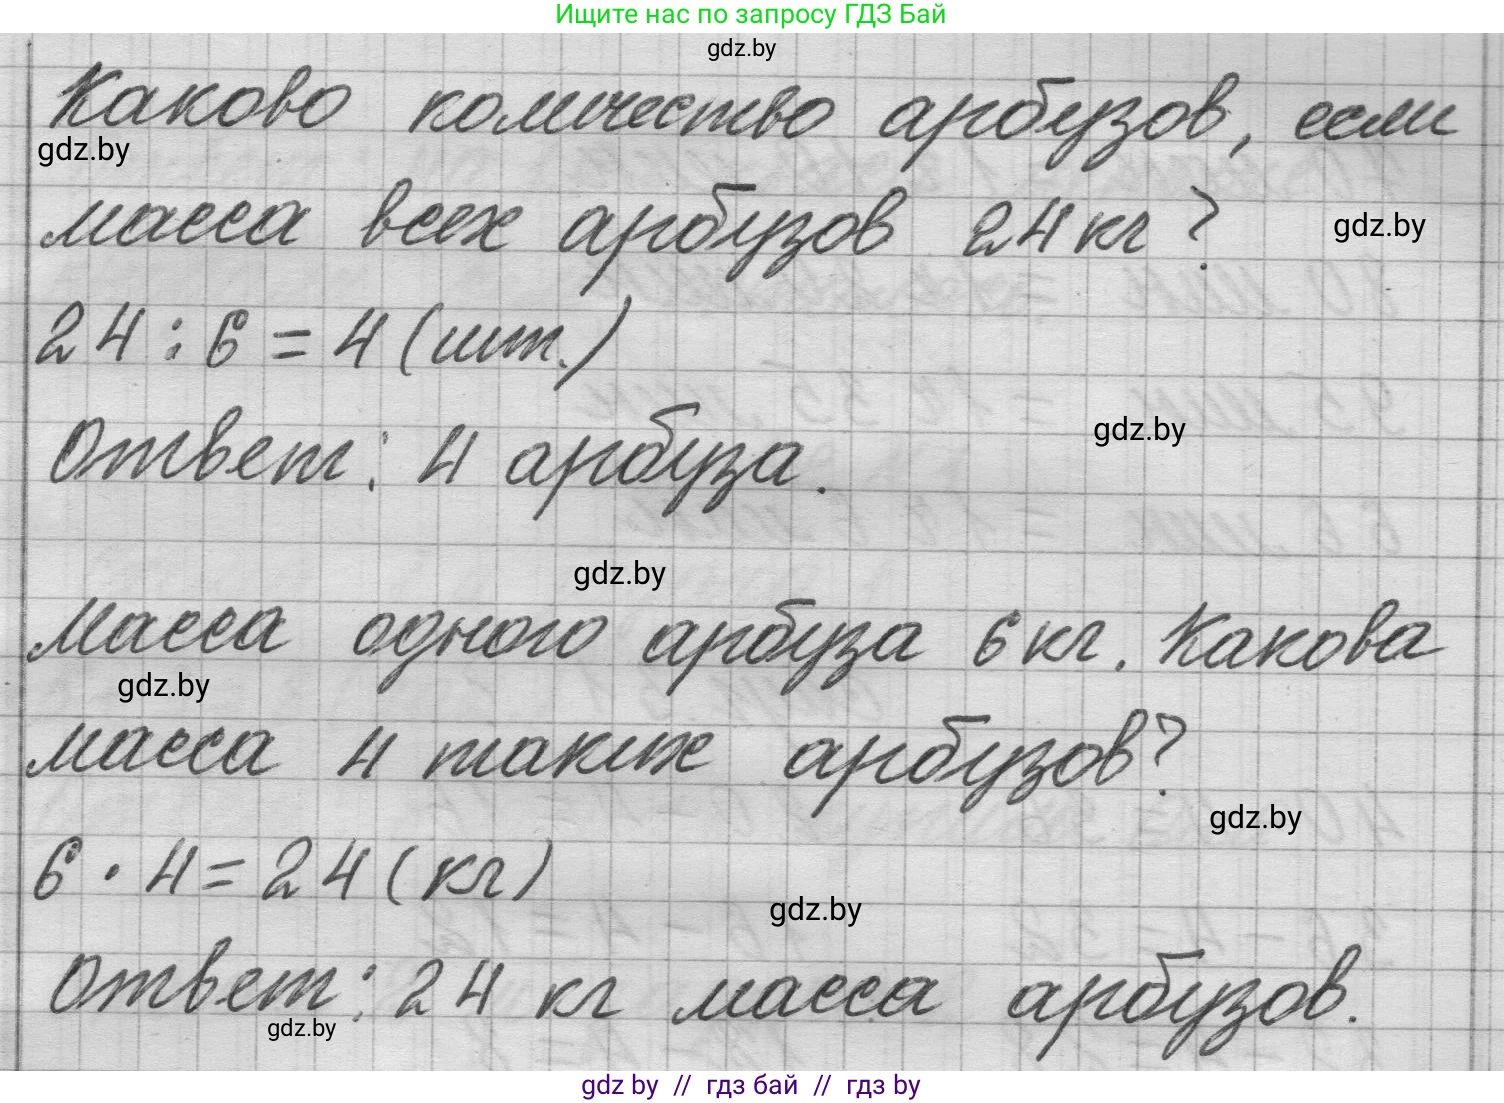 Ищите нас по запросу ГДЗ Бай
gdz.by
Каково количество арбузов, если
gdz.by
масса всех арбузов 24 кг?
gdz.by
24 : 6 = 4 (шт.)
Ответ: 4 арбуза.
gdz.by
gdz.by
Масса одного арбуза 6 кг. Какова
gdz.by
масса 4 таких арбузов?
gdz.by
6 · 4 = 24 (кг)
gdz.by
Ответ: 24 кг масса арбузов.
gdz.by
gdz by // гдз бай // гдз by